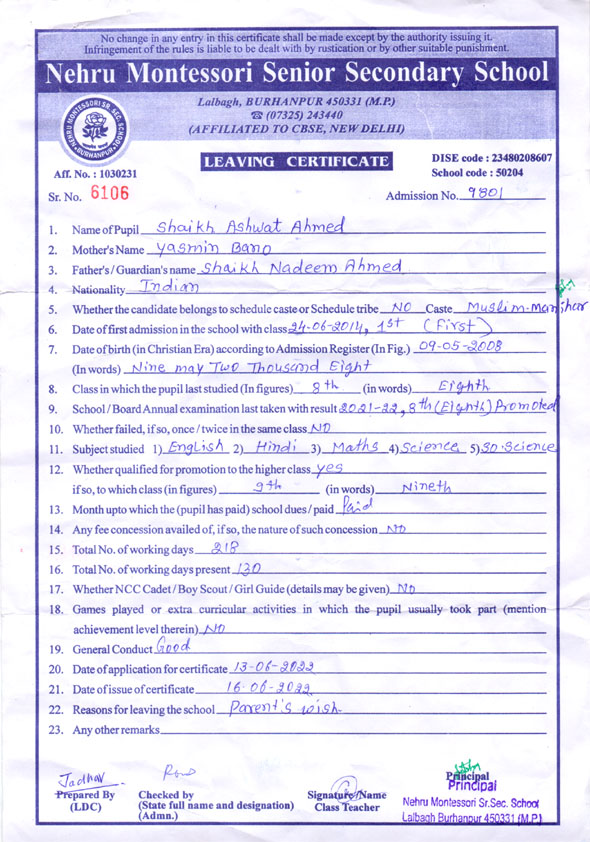 No change in any entry in this certificate shall be made except by the authority issuing it.
Infringement of the rules is liable to be dealt with by rustication or by other suitable punishment.
Nehru Montessori Senior Secondary School
Lalbagh, BURHANPUR 450331 (M.P.)
☎ (07325) 243440
(AFFILIATED TO CBSE, NEW DELHI)
NEHRU MONTESSORI SR. SEC. SCHOOL
BURHANPUR
LEAVING CERTIFICATE
DISE code : 23480208607
School code : 50204
Aff. No. : 1030231
Sr. No. 6106
Admission No. 9801
1. Name of Pupil Shaikh Ashwat Ahmed
2. Mother's Name Yasmin Bano
3. Father's / Guardian's name Shaikh Nadeem Ahmed
4. Nationality Indian
5. Whether the candidate belongs to schedule caste or Schedule tribe NO Caste Muslim-Manihar
6. Date of first admission in the school with class 24-06-2014, 1st (First)
7. Date of birth (in Christian Era) according to Admission Register (In Fig.) 09-05-2008
(In words) Nine may Two Thousand Eight
8. Class in which the pupil last studied (In figures) 8th (in words) Eighth
9. School / Board Annual examination last taken with result 2021-22, 8th (Eighth) Promoted
10. Whether failed, if so, once / twice in the same class NO
11. Subject studied 1) English 2) Hindi 3) Maths 4) Science 5) SO. Science
12. Whether qualified for promotion to the higher class yes
if so, to which class (in figures) 9th (in words) Nineth
13. Month upto which the (pupil has paid) school dues / paid Paid
14. Any fee concession availed of, if so, the nature of such concession NO
15. Total No. of working days 218
16. Total No. of working days present 130
17. Whether NCC Cadet / Boy Scout / Girl Guide (details may be given) No
18. Games played or extra curricular activities in which the pupil usually took part (mention
achievement level therein) NO
19. General Conduct Good
20. Date of application for certificate 13-06-2022
21. Date of issue of certificate 16-06-2022
22. Reasons for leaving the school Parent's wish
23. Any other remarks
Jadhav
Prepared By
(LDC)
Checked by
(State full name and designation)
(Admn.)
Signature/Name
Class Teacher
Principal
Principal
Nehru Montessori Sr.Sec. School
Lalbagh Burhanpur 450331 (M.P.)